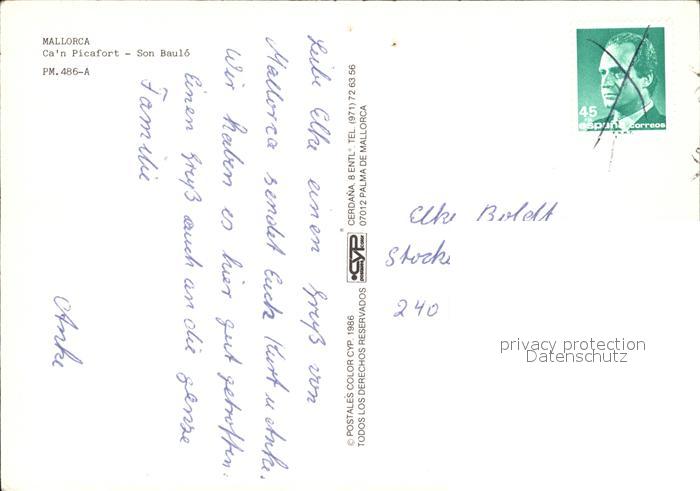 MALLORCA
Ca'n Picafort - Son Bauló
PM.486-A
Liebe Elke einen Gruß von
Mallorca sendet Euch Kurt u Anke.
Wir haben es hier gut getroffen.
Einen Gruß auch an die ganze
Familie
Anke
© POSTALES COLOR CYP, 1986
TODOS LOS DERECHOS RESERVADOS
CYP
CERDAÑA, 8 ENTL° TEL. (971) 72 63 56
07012 PALMA DE MALLORCA
45
españa correos
Elke Boldt
Stocke
240
privacy protection
Datenschutz